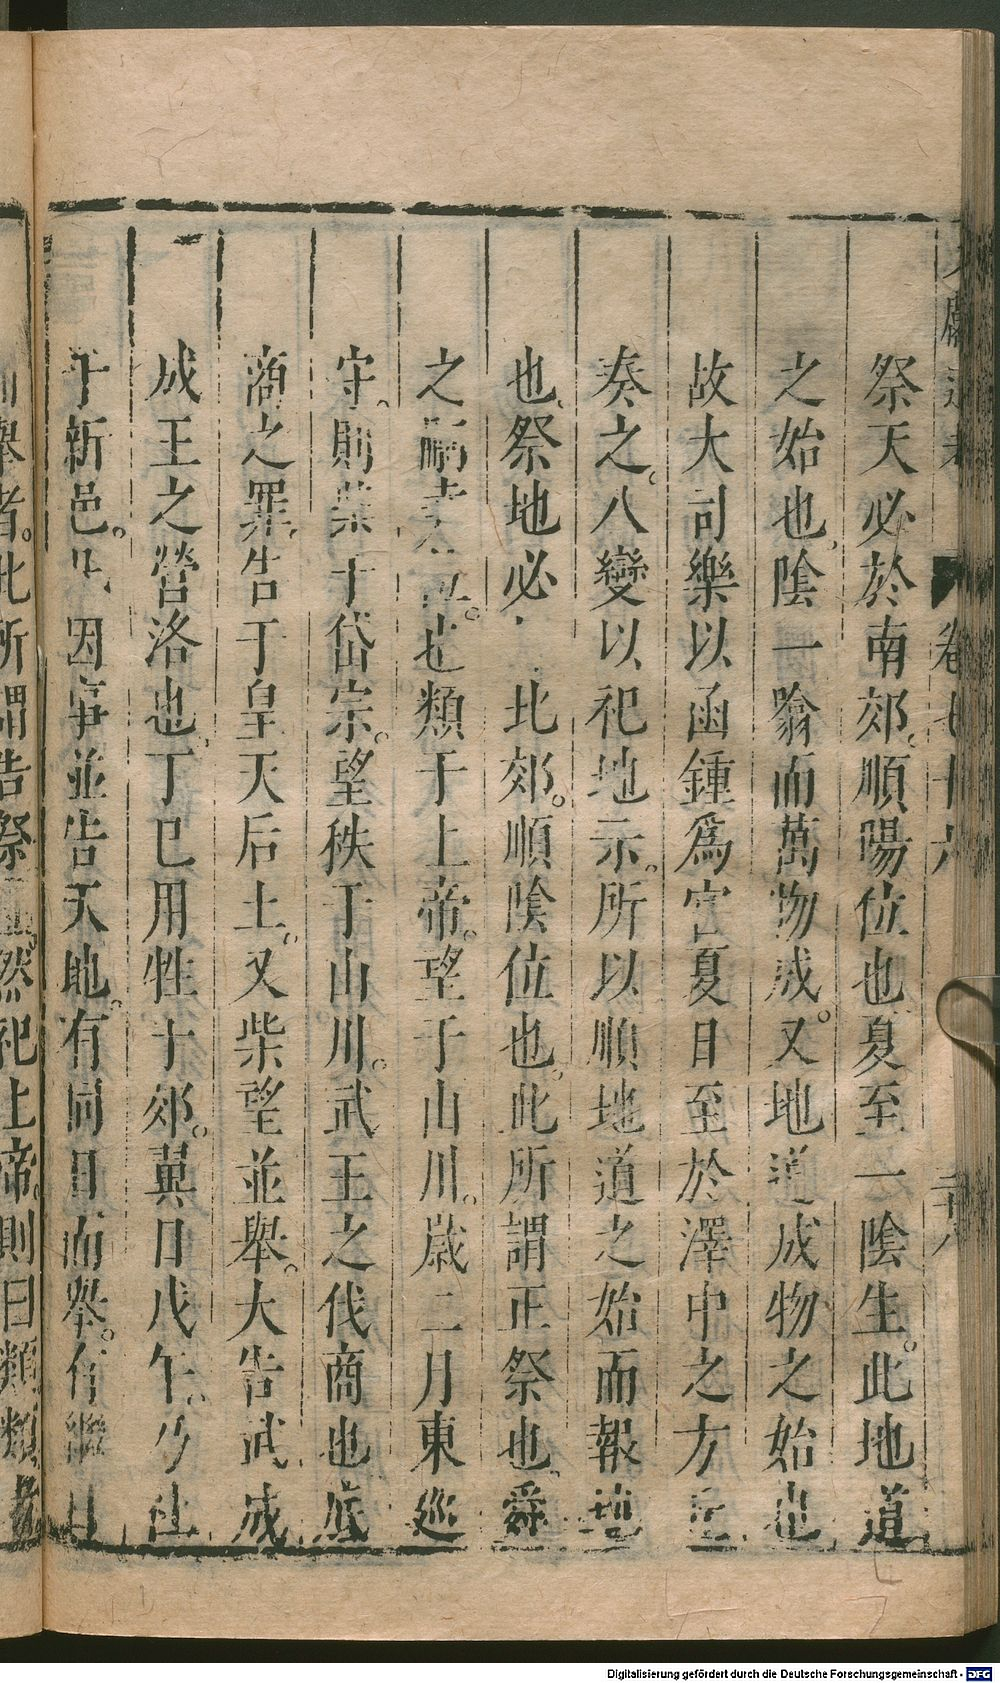 文獻通考 卷七十六 二十八
祭天必於南郊順陽位也夏至一陰生。此地道
之始也陰一翕而萬物成。又地道成物之始也
故大司樂以函鍾爲宮夏日至於澤中之方丘
奏之八變以祀地示。所以順地道之始而報地
也祭地必 北郊。順陰位也。此所謂正祭也舜
之嗣 也類于上帝。望于山川。歲二月東巡
守。則柴于岱宗。望秩于山川。武王之伐商也底
商之罪。告于皇天后土。又柴望並舉。大告武成
成王之營洛也丁巳用牲于郊。翼日戊午。乃社
于新邑。 因事並告天地。有同日而舉。有繼日
而舉者。此所謂告祭也。然祀上帝。則曰類類者
Digitalisierung gefördert durch die Deutsche Forschungsgemeinschaft - DFG